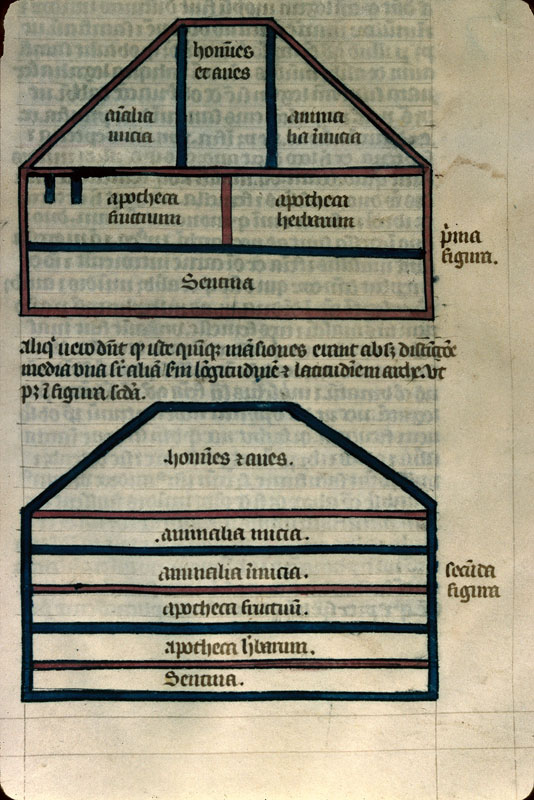 hom̄es
et aues
aīalia
micia
anima
lia īmicia
apotheca
fructuum
apotheca
herbarum
p̄ma
figura.
Sentina
aliqͥ uero dn̄t qͥ iste quinqꝫ māsiones erant absqꝫ distinctōe
media vna sr̄ aliā sm̄ lōgitudinē ⁊ latitudinem arche. vt
pꝫ ī figura scd̄a.
hom̄es ⁊ aues.
.animalia micia.
animalia īmicia.
secūda
figura
apotheca fructuū.
apotheca h̓barum.
Sentina.